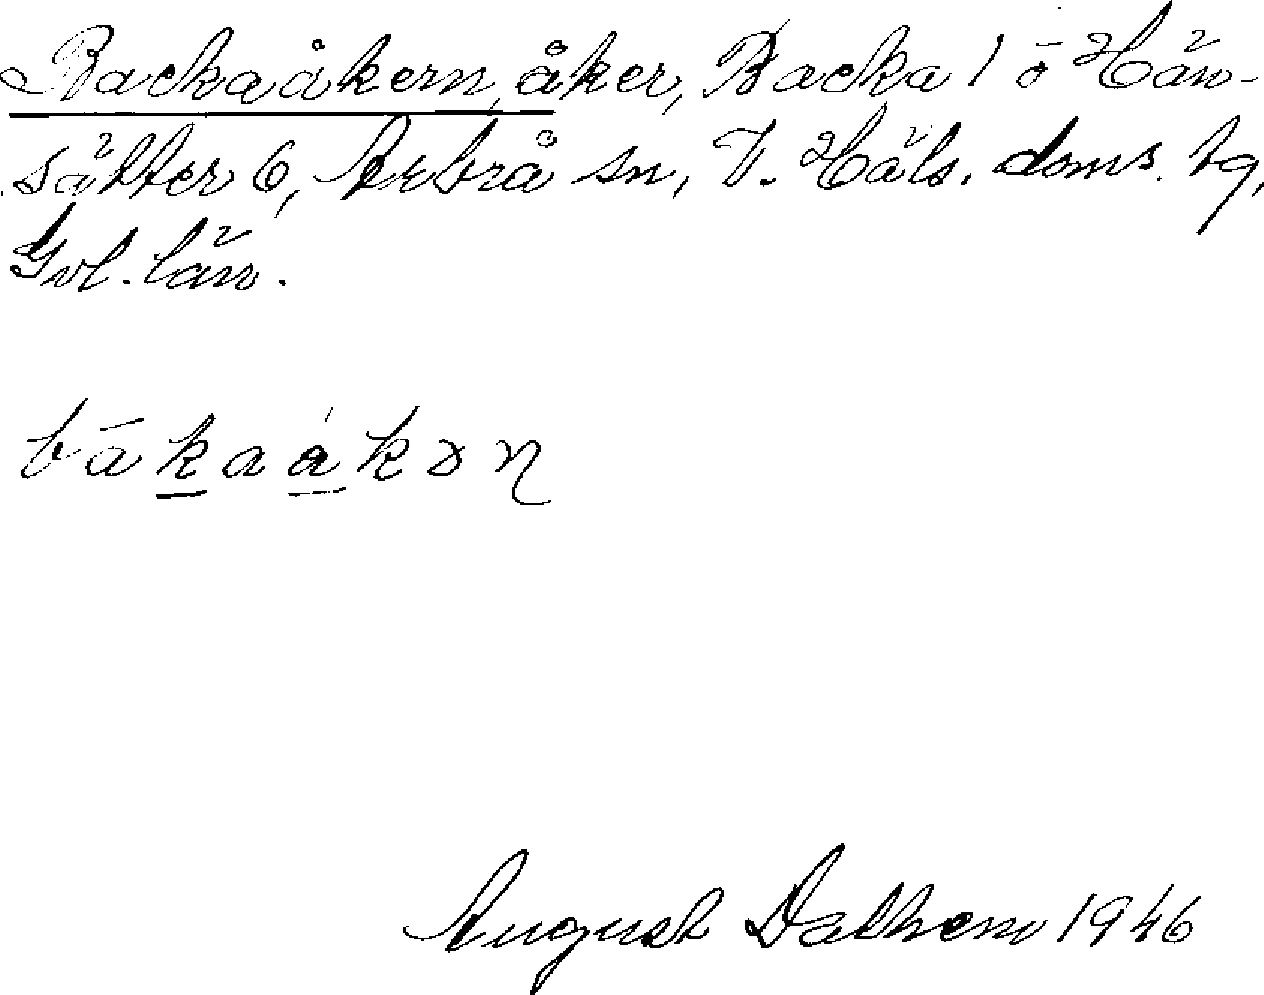 Backaåkern, åker, Backa 1 ö Hän-
sätter 6, Arbrå sn, V. Häls. doms. tg,
Gvl. län.
bákaákən
August Dalhem 1946